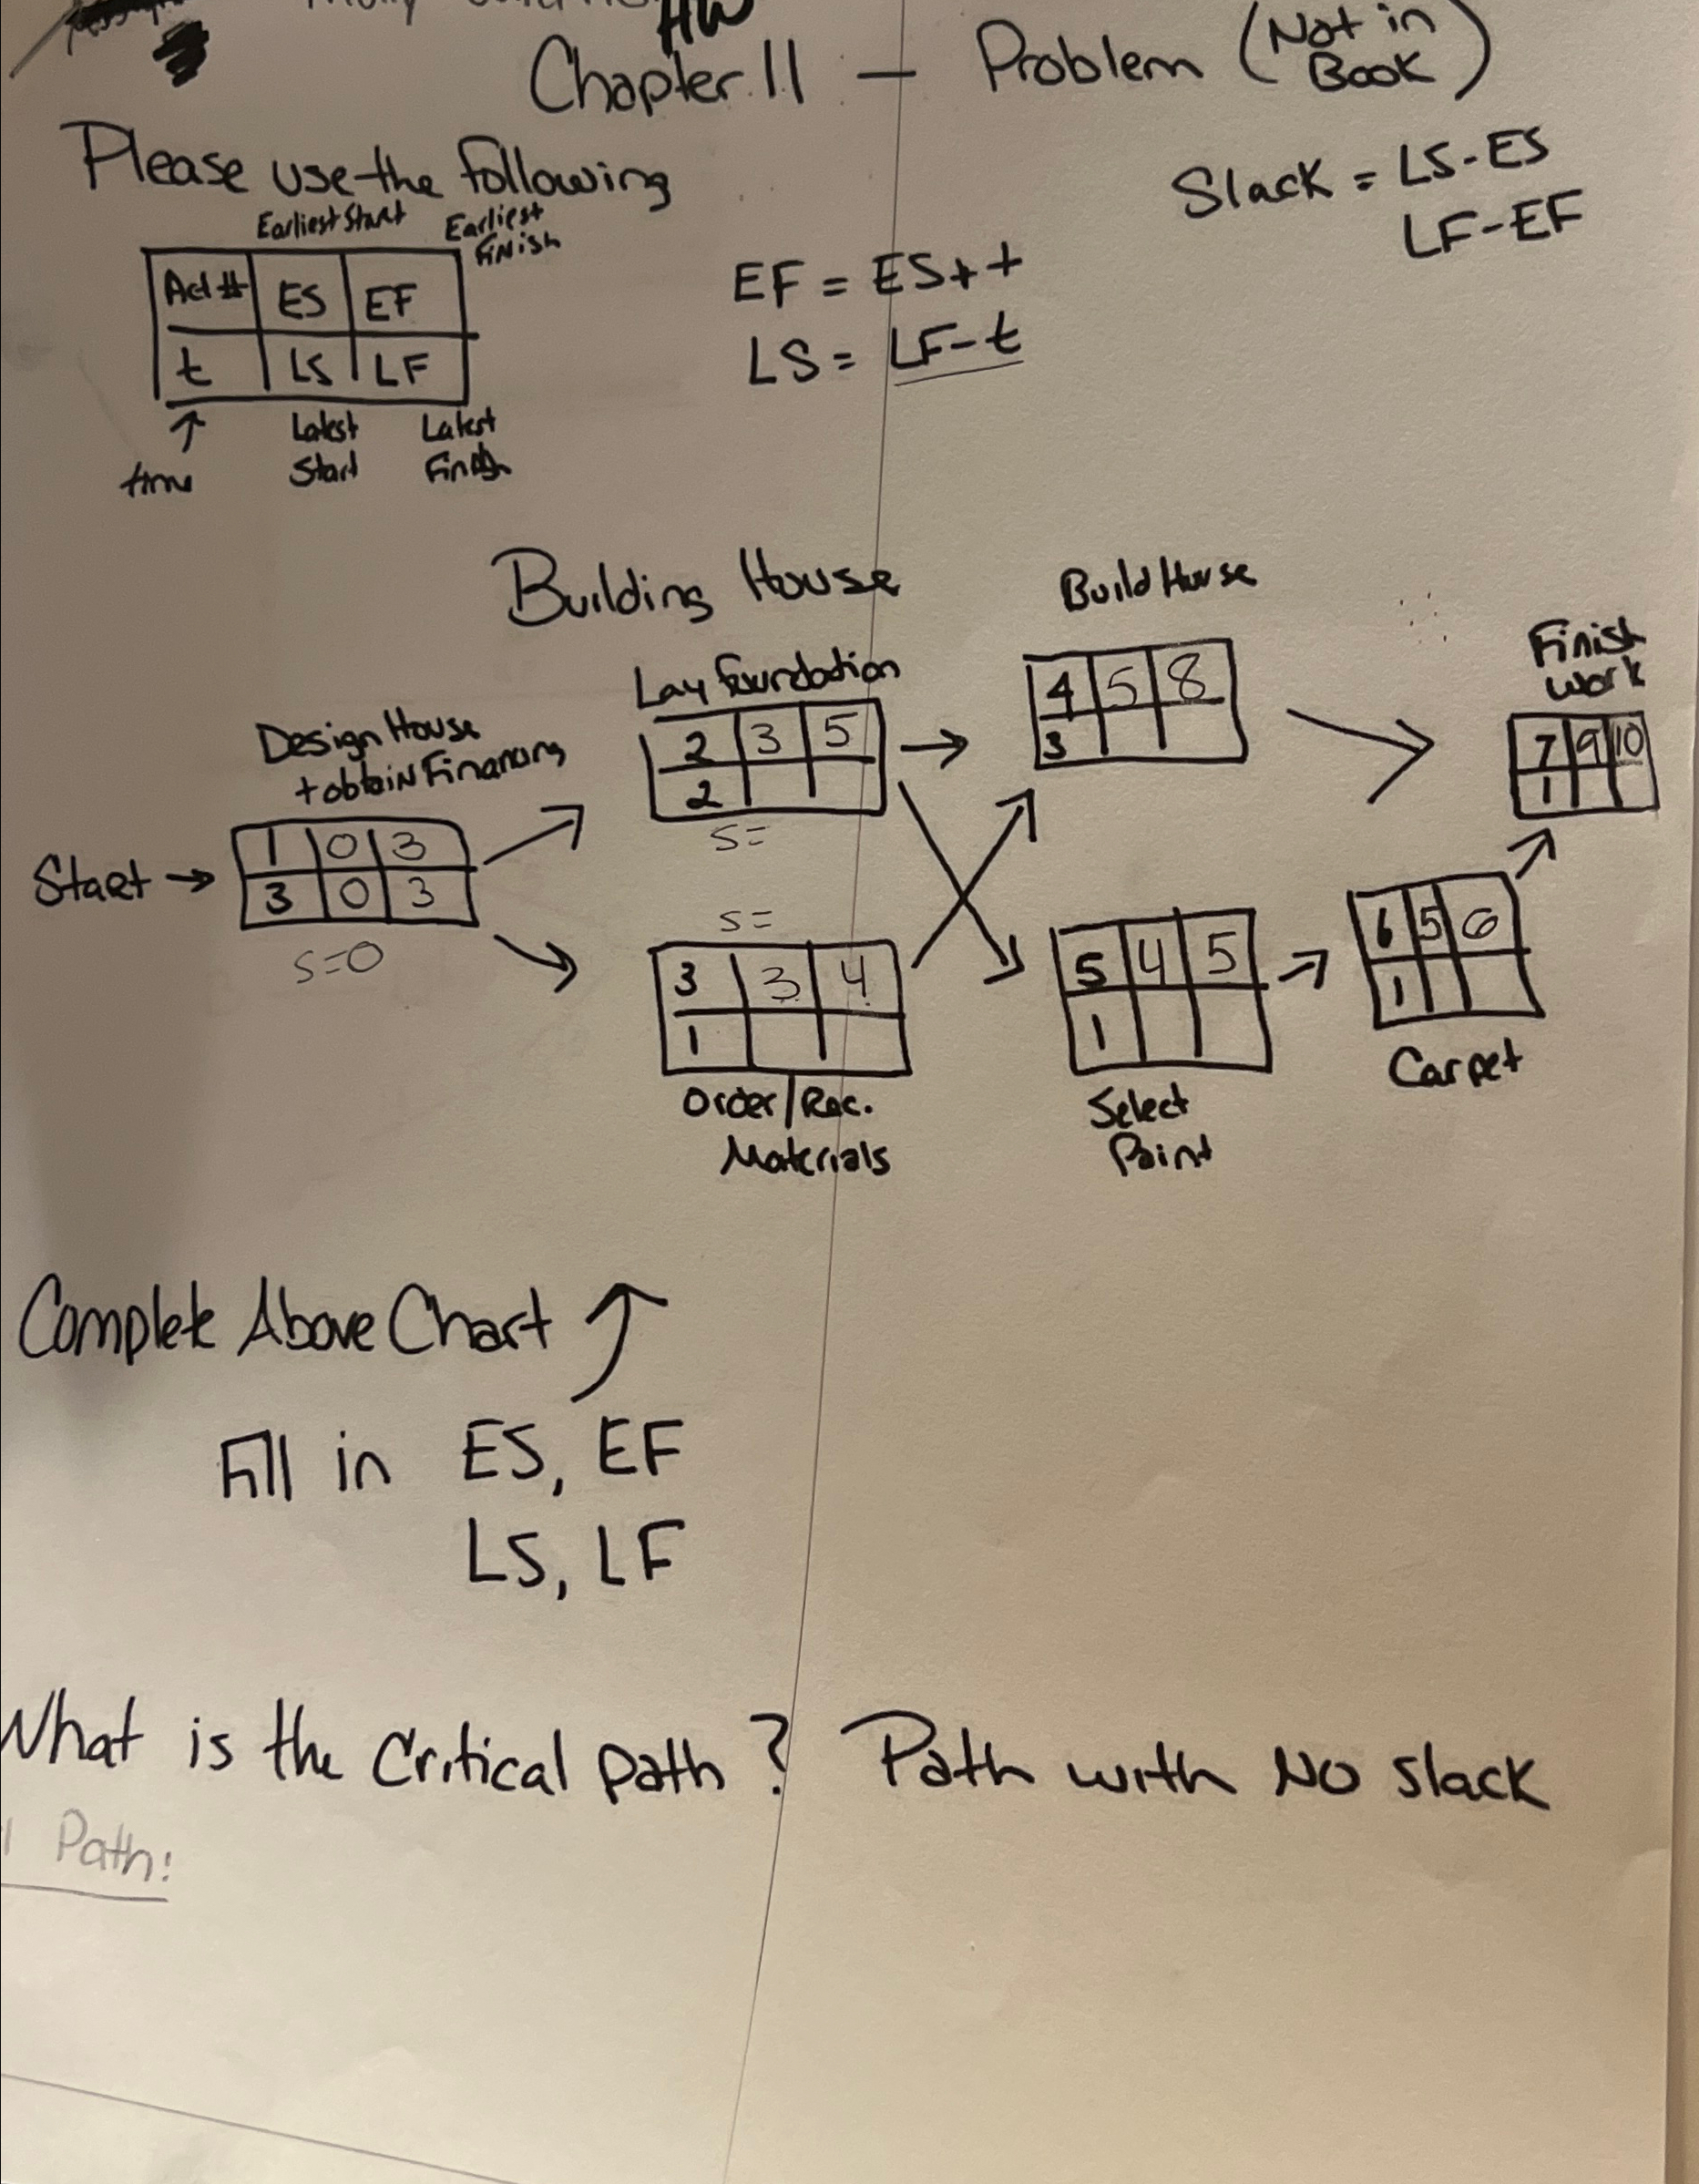 HW
Chapter 11 — Problem (Not in Book)
Please use the following
Slack = LS-ES
LF-EF
Earliest Start
Earliest Finish
Act # ES EF
t LS LF
time
Latest Start
Latest Finish
EF = ES + t
LS = LF-t
Building House
Build House
Finish Work
Lay foundation
Design House
+ obtain Financing
4 5 8
3
7 9 10
1
2 3 5
2
s=
Start →
1 0 3
3 0 3
s=0
s=
3 3 4
1
5 4 5
1
6 5 6
1
Order/Rec.
Materials
Select
Paint
Carpet
Complete Above Chart
Fill in ES, EF
LS, LF
What is the Critical path? Path with No slack
Path: